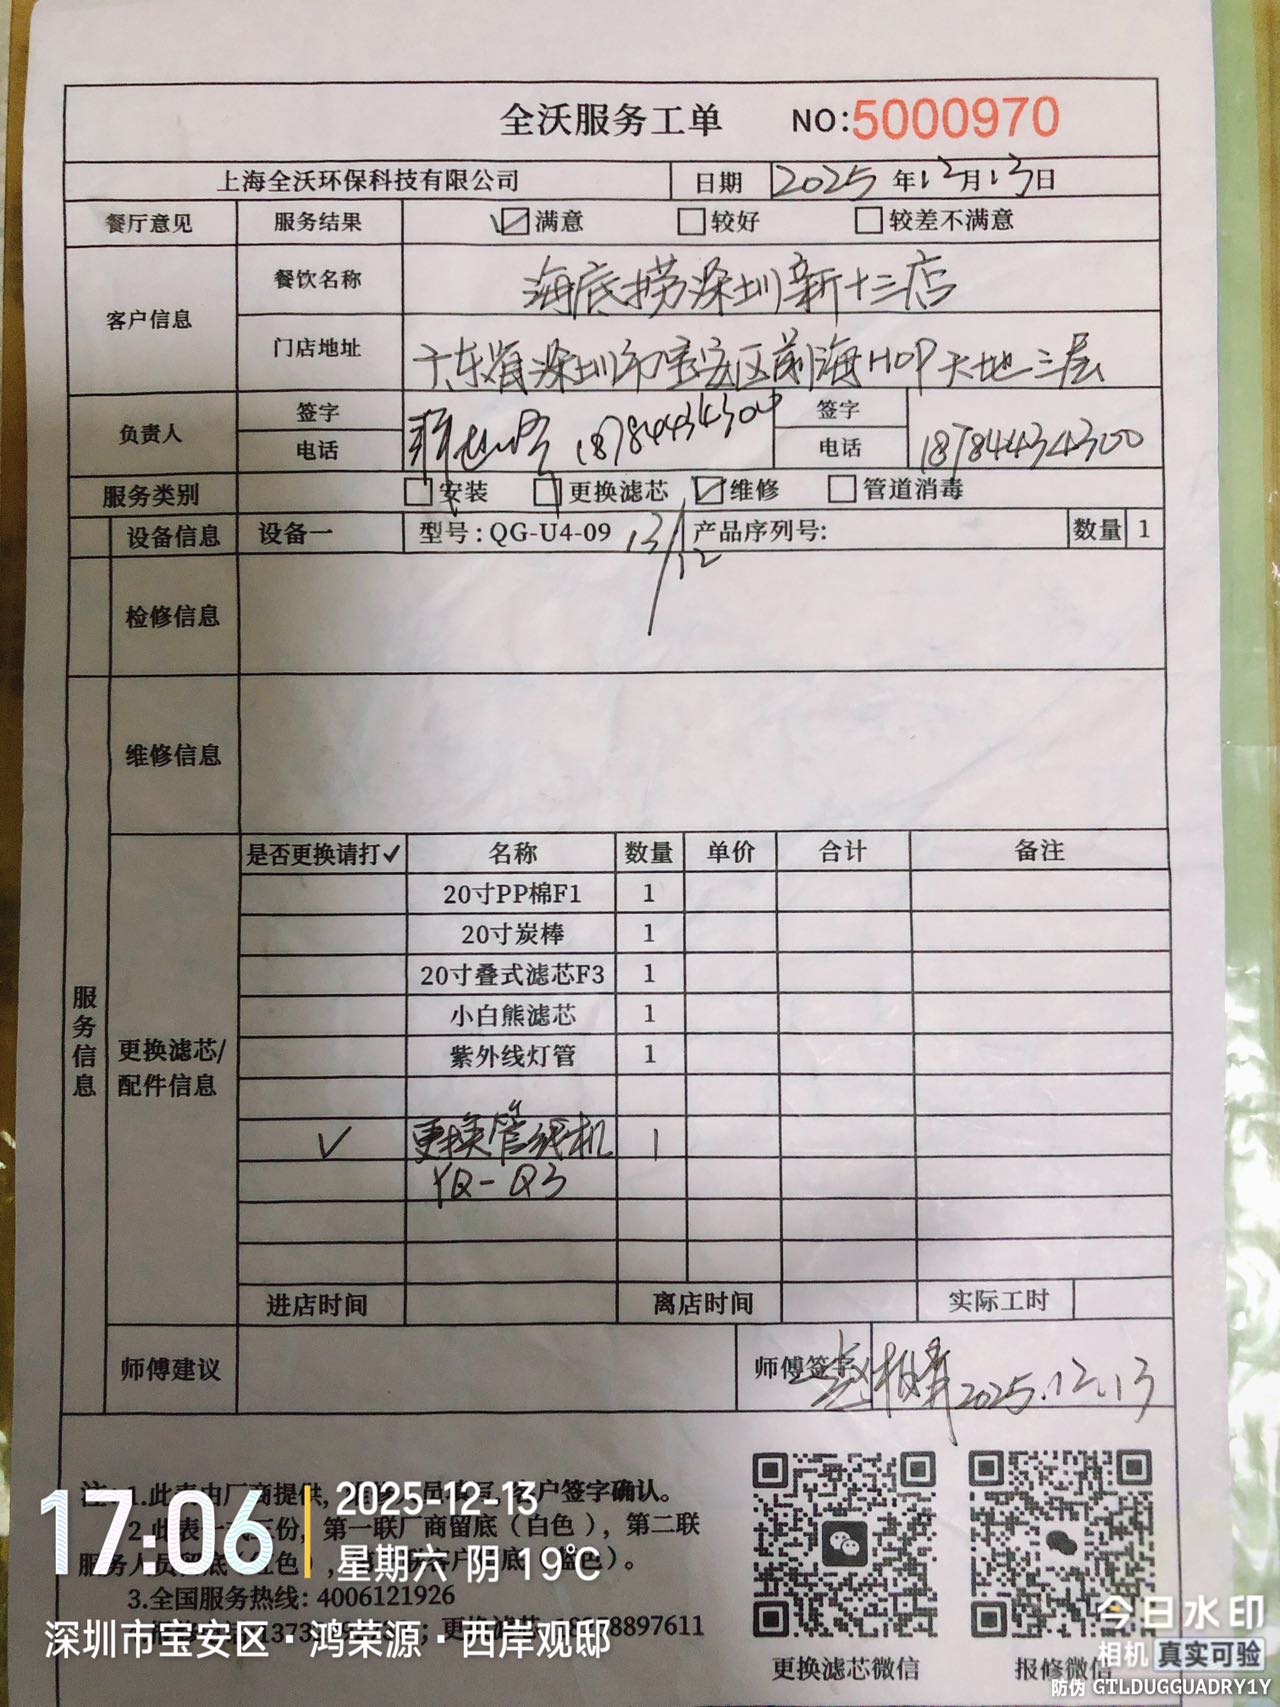 全沃服务工单 NO:5000970
上海全沃环保科技有限公司 日期 2025年12月13日
餐厅意见 服务结果 满意 较好 较差不满意
客户信息 餐饮名称 海底捞深圳新十三店
门店地址 广东省深圳市宝安区前海HOP天地三层
负责人 签字 签字
电话 18784434300 电话 18784434300
服务类别 安装 更换滤芯 维修 管道消毒
设备信息 设备一 型号:QG-U4-09 13/12 产品序列号: 数量 1
检修信息
维修信息
服务信息
更换滤芯/
配件信息
是否更换请打✓ 名称 数量 单价 合计 备注
20寸PP棉F1 1
20寸炭棒 1
20寸叠式滤芯F3 1
小白熊滤芯 1
紫外线灯管 1
✓ 更换管线机 1
YQ-Q3
进店时间 离店时间 实际工时
师傅建议 师傅签字 2025.12.13
注:1.此表由厂商提供, 客户签字确认。
2.此表一式三份, 第一联厂商留底(白色), 第二联
服务人员留底(红色), 客户留底(蓝色)。
3.全国服务热线: 4006121926
更换滤芯
更换滤芯微信 报修微信
17:06 2025-12-13
星期六 阴 19℃
深圳市宝安区·鸿荣源·西岸观邸
今日水印
相机 真实可验
防伪 GTLDUGGUADRY1Y